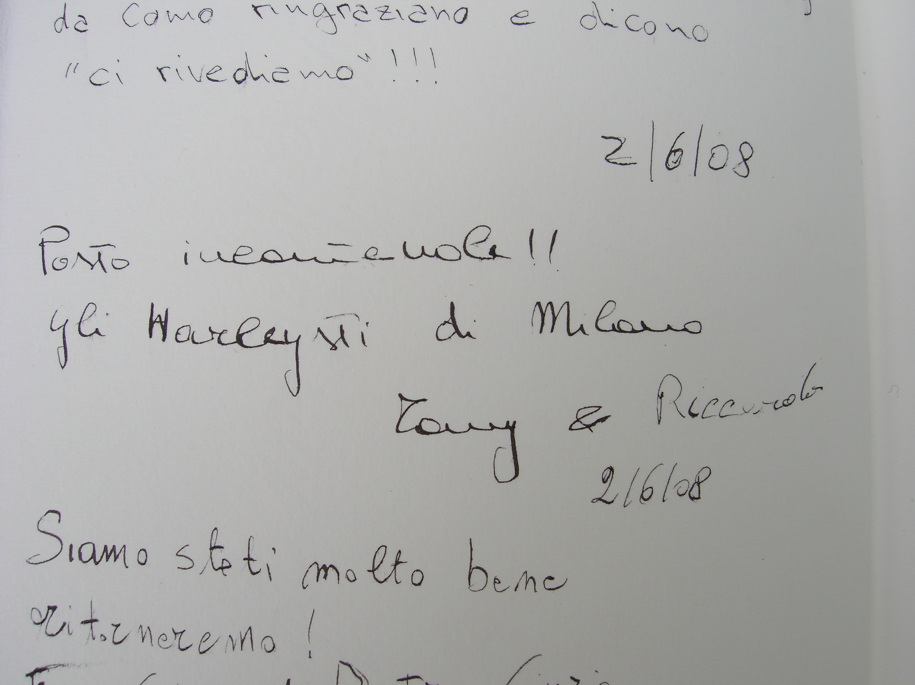 da Como ringraziano e dicono
"ci rivediamo"!!!
2/6/08
Posto incantevole!!
gli Harleysti di Milano
Tony & Riccardo
2/6/08
Siamo stati molto bene
ritorneremo!